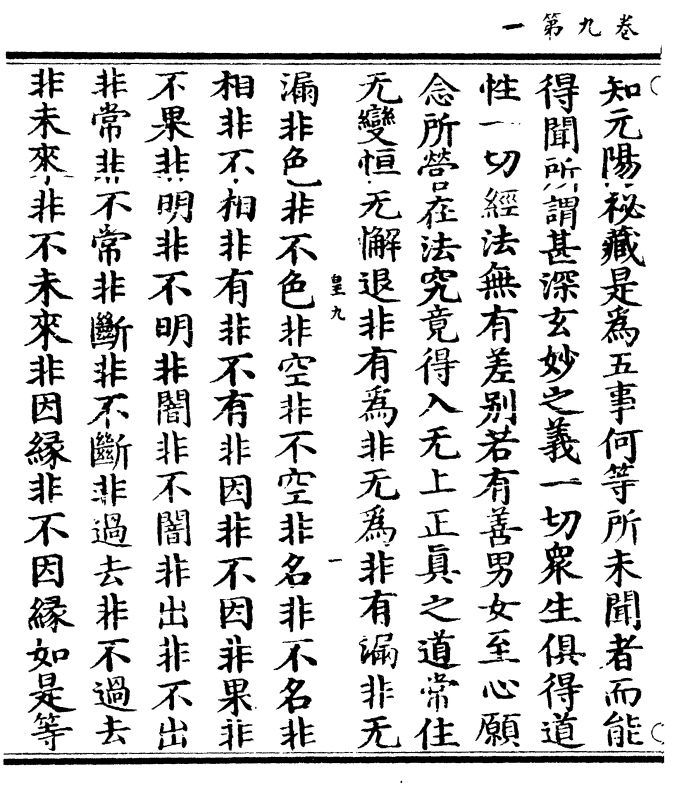 卷九第一
知元陽祕藏是爲五事何等所未聞者而能
得聞所謂甚深玄妙之義一切衆生俱得道
性一切經法無有差别若有善男女至心願
念所營在法究竟得入无上正眞之道常住
无變恒无懈退非有爲非无爲非有漏非无
皇九
一
漏非色非不色非空非不空非名非不名非
相非不相非有非不有非因非不因非果非
不果非明非不明非闇非不闇非出非不出
非常非不常非斷非不斷非過去非不過去
非未來非不未來非因緣非不因緣如是等